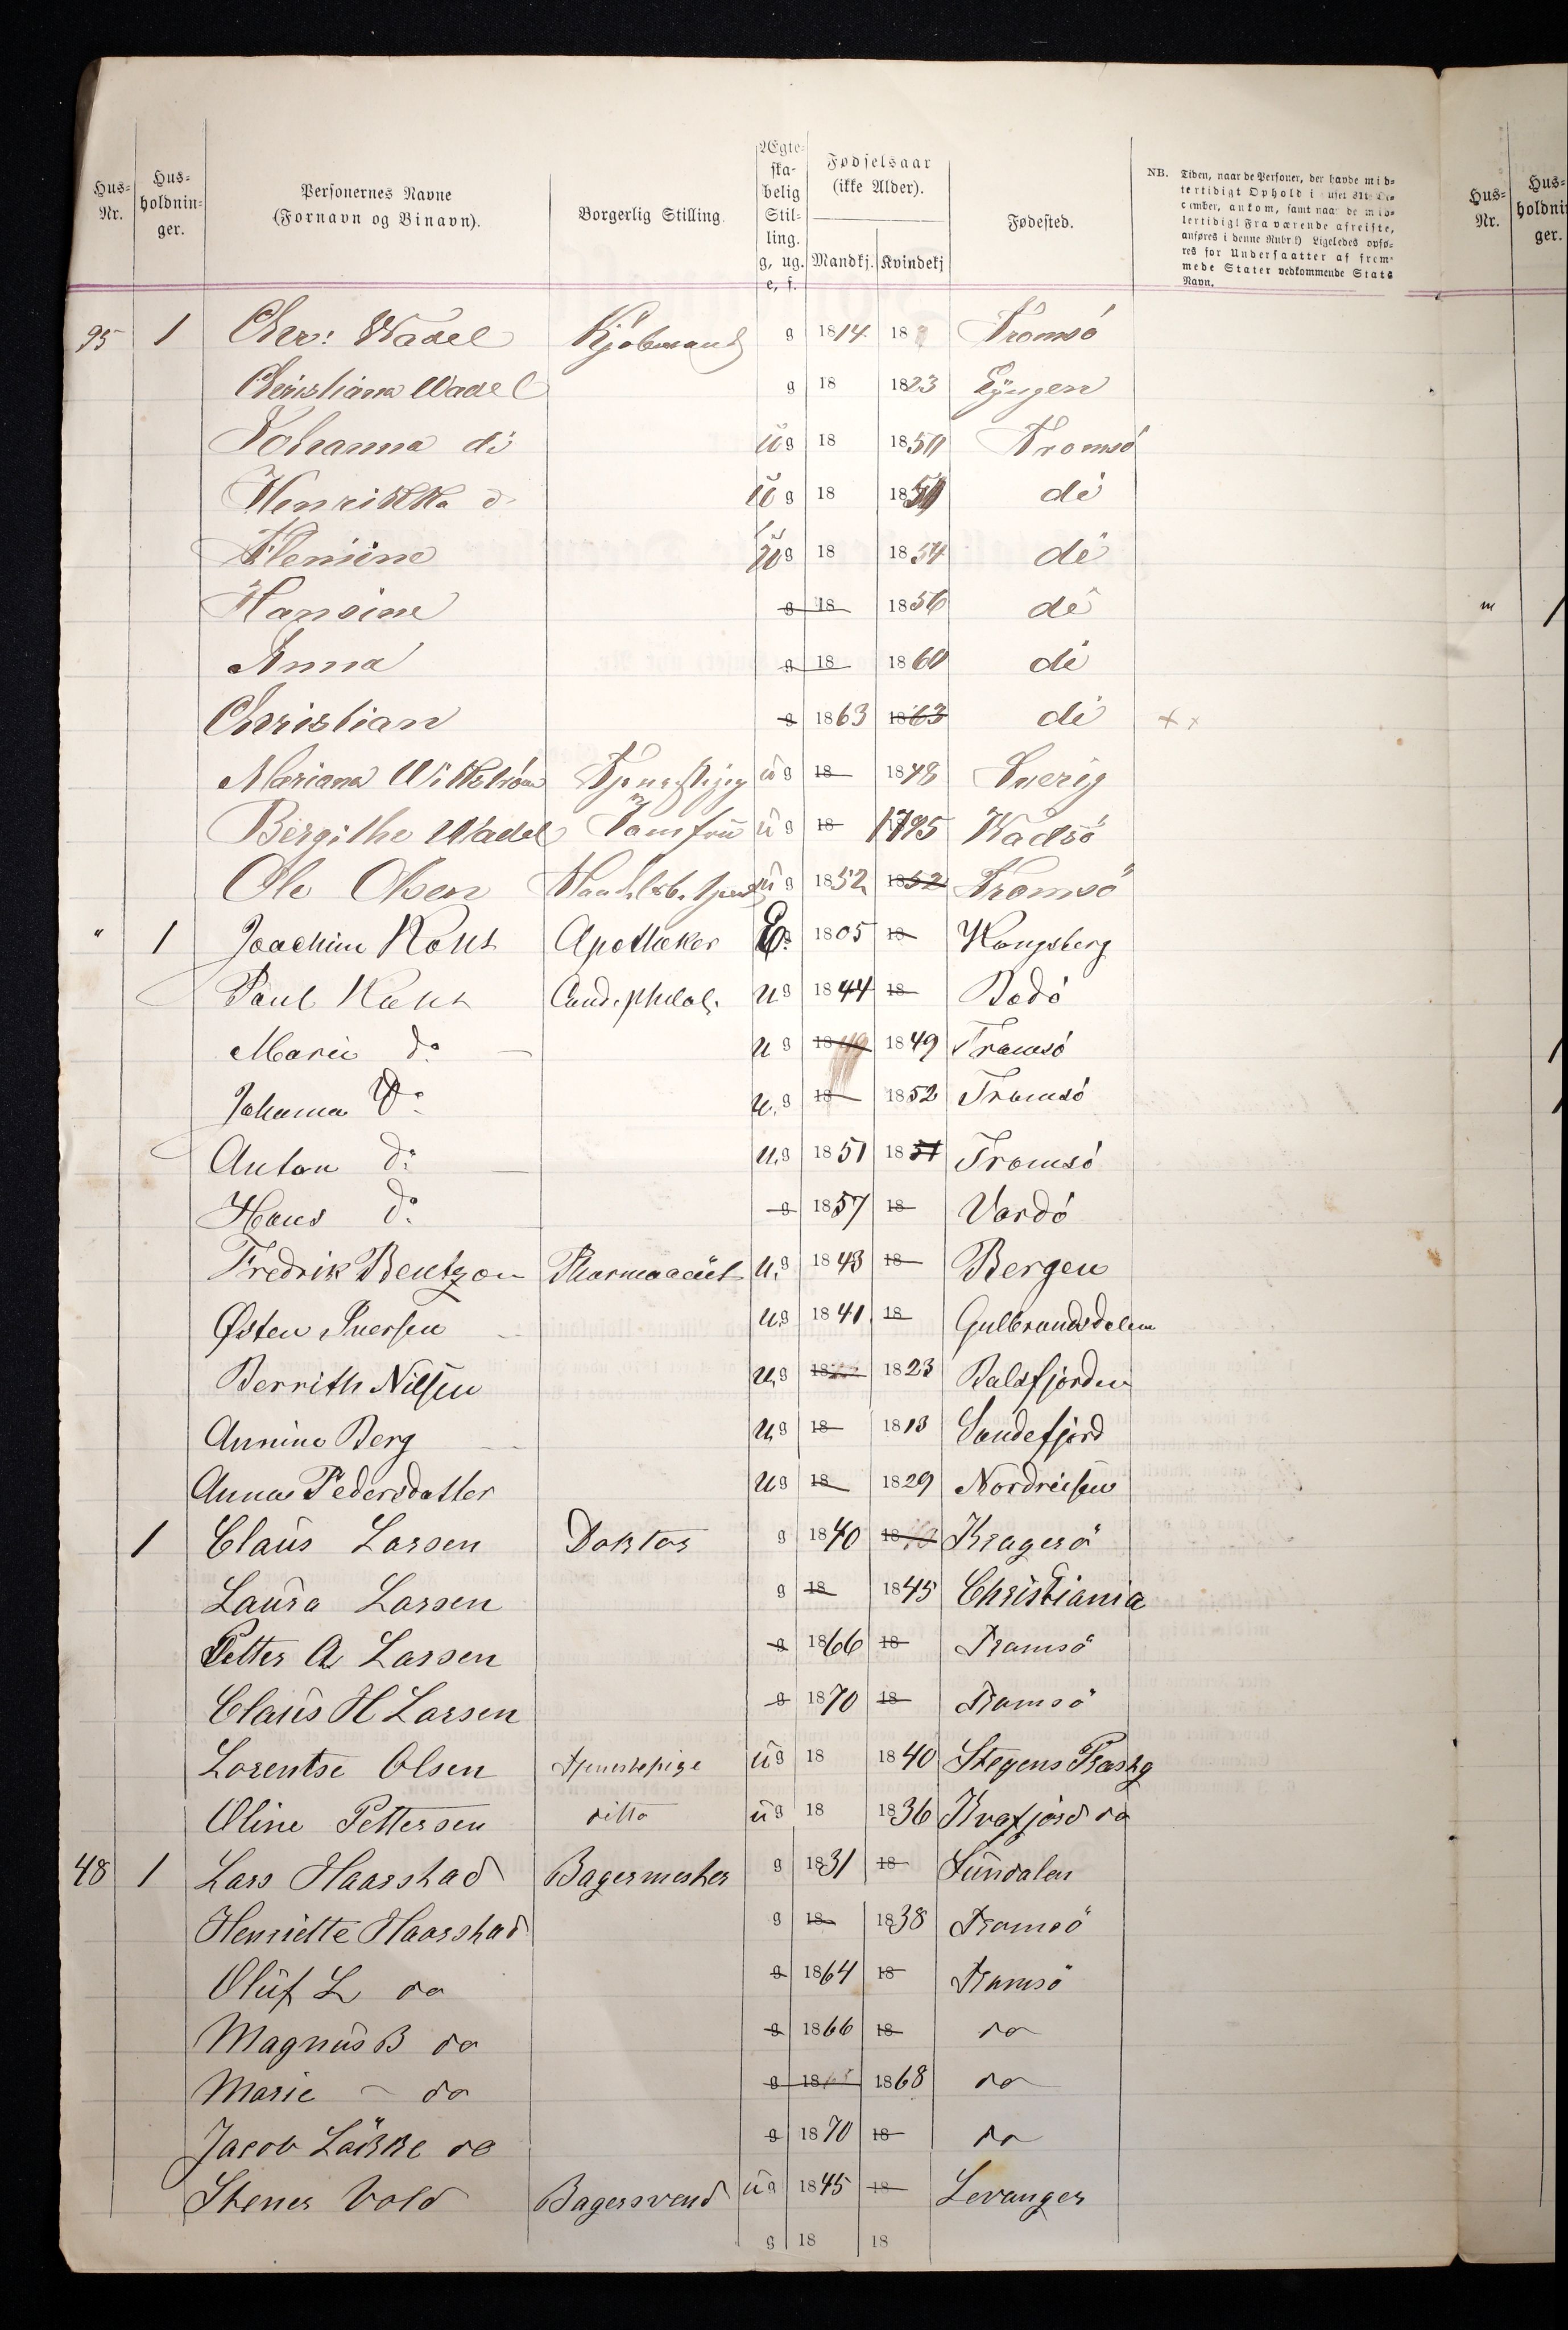 Hus-Nr. Hus-holdnin-ger. Personernes Navne (Fornavn og Binavn). Borgerlig Stilling. Ægte-ska-belig Stil-ling. g, ug. e, f. Fødselsaar (ikke Alder). Mandkj. Kvindekj Fødested.
NB. Tiden, naar de Personer, der havde mid-
lertidigt Ophold i Huset 31te De-
cember, ankom, samt naar de mid-
lertidigt Fraværende afreiste,
anføres i denne Rubrik) Ligeledes opfø-
res for Undersaatter af frem-
mede Stater vedkommende Stats
Navn.
Hus-Nr. Hus-holdnin-ger.
95 1 Chr: Wadel Kjøbmand g 1814 18 Tromsö
Christiana Wadel g 18 1823 Lyngen
Johanna do ug 18 1850 Tromsö
Henrikka d ug 18 18 do
ug 18 1854 do
Hansine g 18 1856 do
Anna g 18 1860 do
Christian g 1863 1863 do
Mariana Wikström ug 18 1848 Sverig
Bergithe Wadel Jomfru ug 18 1795 Wadsö
Ole Olsen ug 1852 1852 Tromsö
" 1 Joachim Apotheker E. 1805 18 Kongsberg
Paul Cand. philol. ug 1844 18 Bodö
Marie do ug 18 1849 Tromsö
Johanna Do u.g 18 1852 Tromsö
Anton do u.g 1851 1851 Tromsö
Hans do g 1857 18 Vardö
Fredrik Bentzon Pharmaceut u.g 1843 18 Bergen
Østen Iversen ug 1841 18 Gulbrandsdalen
Berrith Nilsen u,g 18 1823 Balsfjorden
Annine Berg u,g 18 1813 Sandefjord
Anna Pedersdatter ug 18 1829 Nordreisen
1 Claus Larsen Doktor g 1840 18 Kragerö
Laura Larsen g 18 1845 Christiania
Petter A Larsen g 1866 18 Tromsö
Claus H Larsen g 1870 18 Tromsö
Lorentse Olsen Tjenestepige ug 18 1840 Stegens Præstg
Oline Pettersen ditto ug 18 1836 Kvæfjord do
48 1 Lars Haarstad Bagermester g 1831 18 Sundalen
Henriette Haarstad g 18 1838 Tromsö
Oluf L do g 1864 18 Tromsö
Magnus B do g 1866 18 do
Marie do g 18 1868 do
Jacob Läkke do g 1870 18 do
Stener Vold Bagersvend ug 1845 18 Levanger
g 18 18